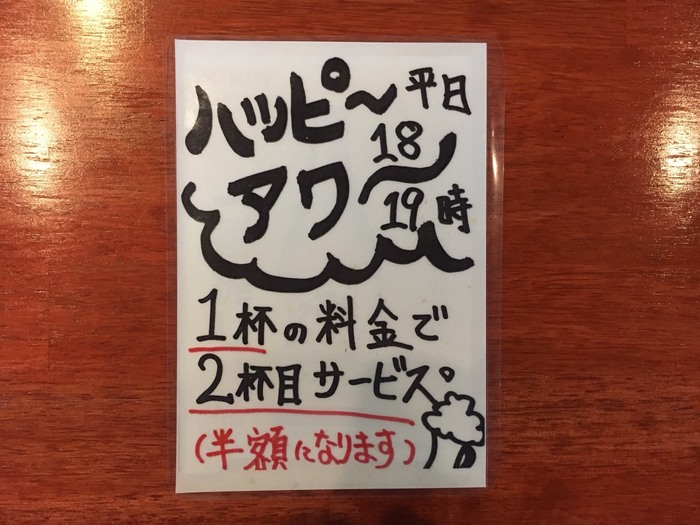 ハッピ〜 平日
アワ〜 18〜19時
1杯の料金で
2杯目サービス。
(半額になります)